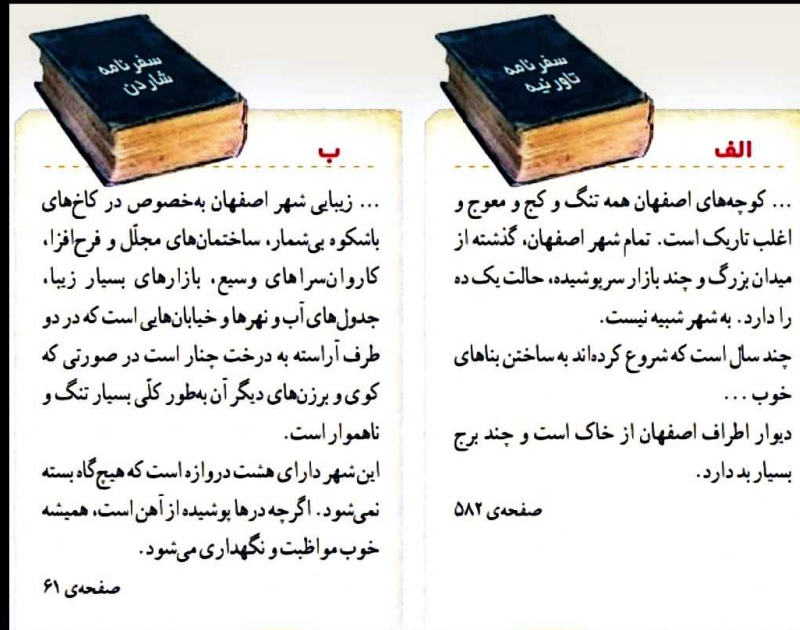 سفرنامه
تاورنیه
الف
... کوچه‌های اصفهان همه تنگ و کج و معوج و
اغلب تاریک است. تمام شهر اصفهان، گذشته از
میدان بزرگ و چند بازار سرپوشیده، حالت یک ده
را دارد. به شهر شبیه نیست.
چند سال است که شروع کرده‌اند به ساختن بناهای
خوب ...
دیوار اطراف اصفهان از خاک است و چند برج
بسیار بد دارد.
صفحه‌ی ۵۸۲
سفرنامه
شاردن
ب
... زیبایی شهر اصفهان به‌خصوص در کاخ‌های
باشکوه بی‌شمار، ساختمان‌های مجلّل و فرح‌افزا،
کاروان‌سراهای وسیع، بازارهای بسیار زیبا،
جدول‌های آب و نهرها و خیابان‌هایی است که در دو
طرف آراسته به درخت چنار است در صورتی که
کوی و برزن‌های دیگر آن به‌طور کلّی بسیار تنگ و
ناهموار است.
این شهر دارای هشت دروازه است که هیچ‌گاه بسته
نمی‌شود. اگرچه درها پوشیده از آهن است، همیشه
خوب مواظبت و نگهداری می‌شود.
صفحه‌ی ۶۱